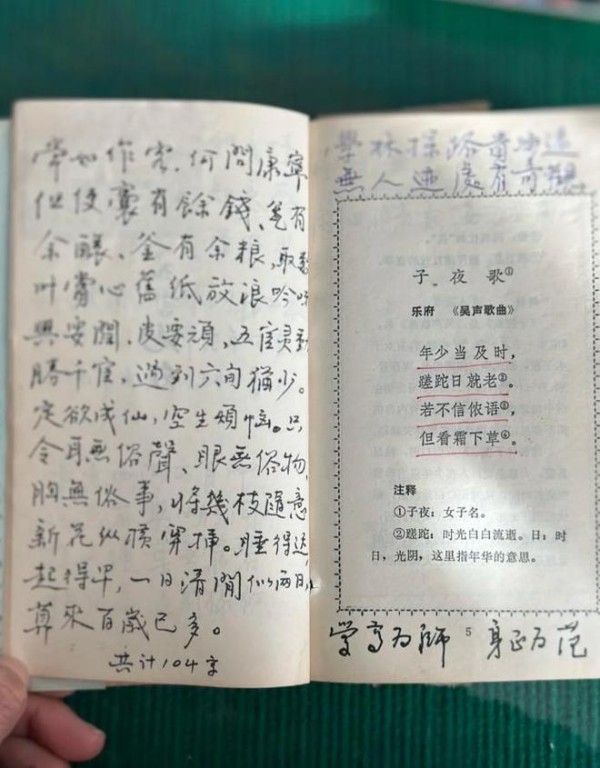 常如作客，何问康寧
但使囊有餘錢、瓮有
余釀、釜有余粮，取数
叶賞心舊纸放浪吟咏
興要闊，皮要頑，五官灵動
勝千官，過到六旬猶少。
定欲成仙，空生煩恼。只
令耳無俗聲、眼無俗物，
胸無俗事，将幾枝隨意
新花纵横穿插。睡得迟
起得早，一日清閒似两日，
算來百歲已多。
共计104字
學林探路貴涉遠
無人迹處有奇觀
子夜歌①
乐府 《吴声歌曲》
年少当及时，
蹉跎日就老②。
若不信侬语③，
但看霜下草④。
注释
①子夜：女子名。
②蹉跎：时光白白流逝。日：时
日，光阴，这里指年华的意思。
5
学高为師 身正为范